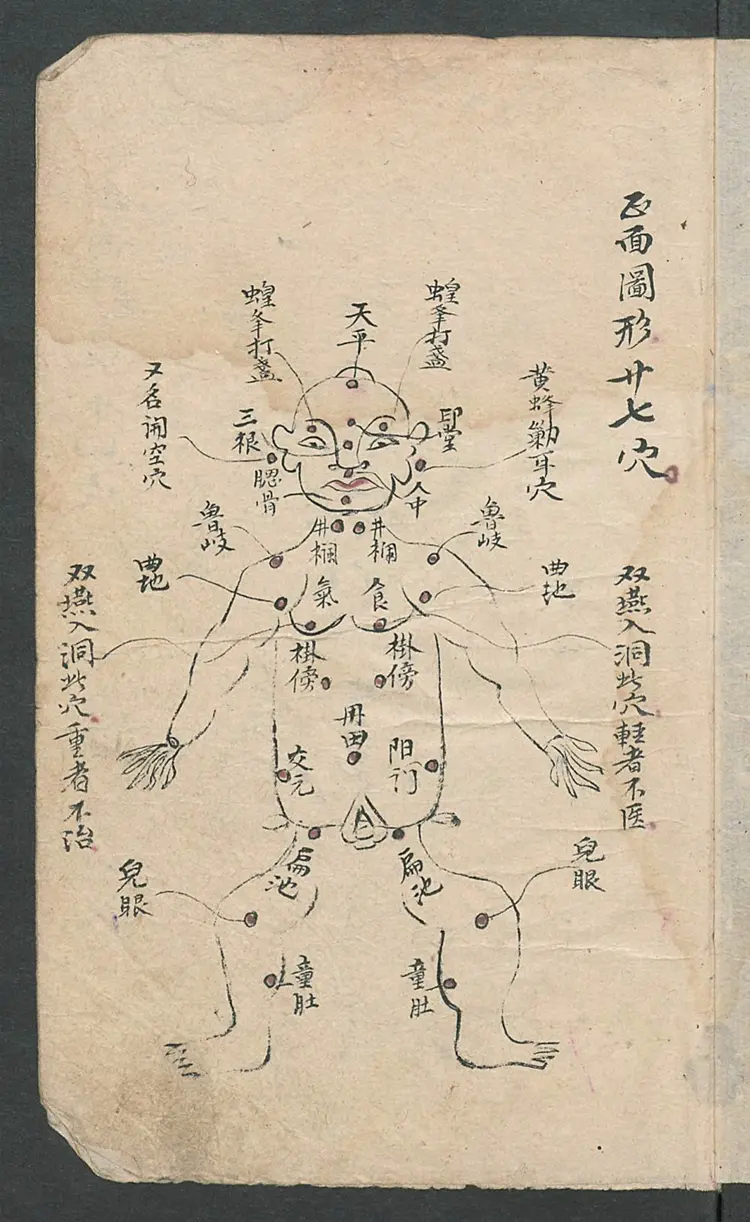 正面圖形廿七穴
天平
蝗夆打盞
蝗夆打盞
印堂
三根
黄蜂
耳穴
又名
空穴
腮骨
人中
魯岐
井榈
井榈
魯岐
曲地
氣
食
曲地
双燕入洞此穴輕者不医
双燕入洞此穴重者不治
掛傍
掛傍
丹田
交元
阳
扁池
扁池
兒眼
兒眼
童肚
童肚